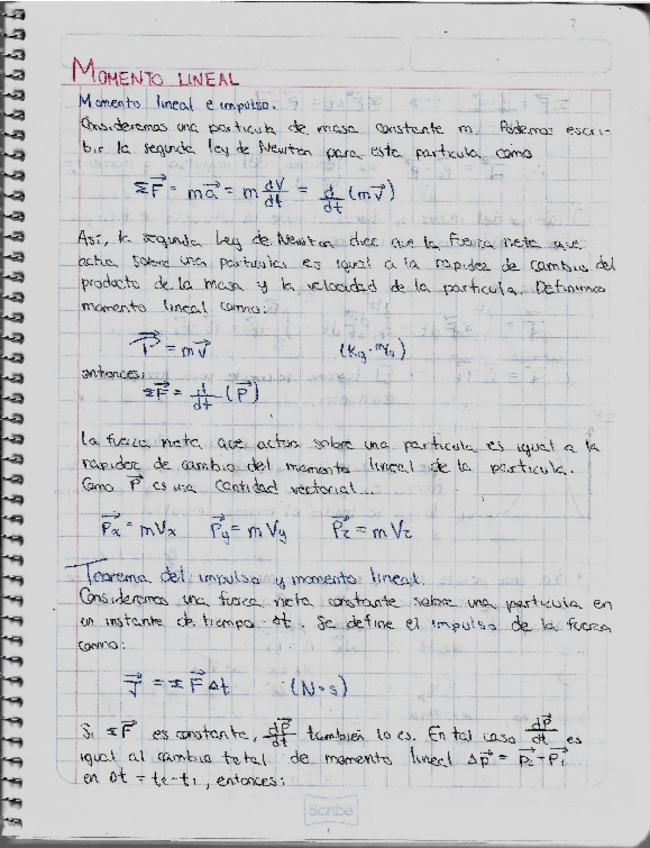 MOMENTO LINEAL
Momento lineal e impulso.
Consideremos una particula de masa constante m. Podemos escri-
bir la segunda ley de Newton para esta particula como
ΣF⃗ = ma⃗ = m dV/dt = d/dt (mv⃗)
Así, la segunda Ley de Newton dice que la fuerza neta que
actúa sobre una particula, es igual a la rapidez de cambio del
producto de la masa y la velocidad de la particula. Definimos
momento lineal como:
P⃗ = mv⃗ (Kg·m/s)
entonces:
ΣF⃗ = d/dt (P⃗)
La fuerza neta que actua sobre una particula es igual a la
rapidez de cambio del momento lineal de la particula.
Como P⃗ es una cantidad vectorial...
P⃗x = mVx P⃗y = mVy P⃗z = mVz
Teorema del impulso y momento lineal.
Consideremos una fuerza neta constante sobre una particula en
un instante de tiempo Δt. Se define el impulso de la fuerza
como:
J⃗ = ΣF⃗ Δt (N·s)
Si ΣF⃗ es constante, dP⃗/dt también lo es. En tal caso dP⃗/dt es
igual al cambio total de momento lineal ΔP⃗ = P⃗2 - P⃗1
en Δt = t2-t1, entonces:
Scribe